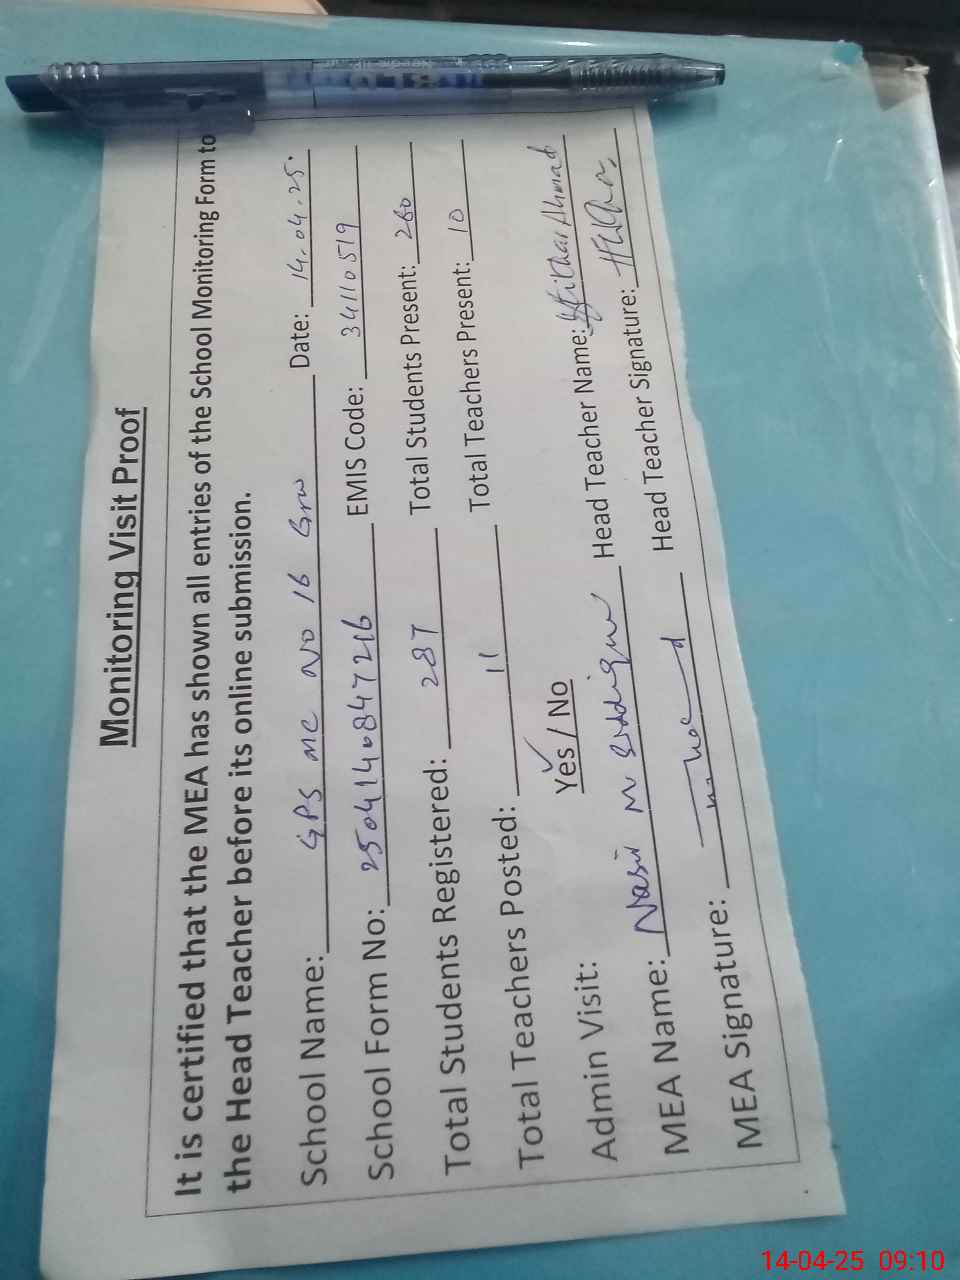 Monitoring Visit Proof
It is certified that the MEA has shown all entries of the School Monitoring Form to
the Head Teacher before its online submission.
School Name: GPS MC NO 16 Grw Date: 14.04.25.
School Form No: 2504140847216 EMIS Code: 34110519
Total Students Registered: 287 Total Students Present: 260
Total Teachers Posted: 11 Total Teachers Present: 10
Admin Visit: Yes / No
MEA Name: Nasir M Siddique Head Teacher Name: Iftikhar Ahmad
MEA Signature: Head Teacher Signature:
14-04-25 09:10